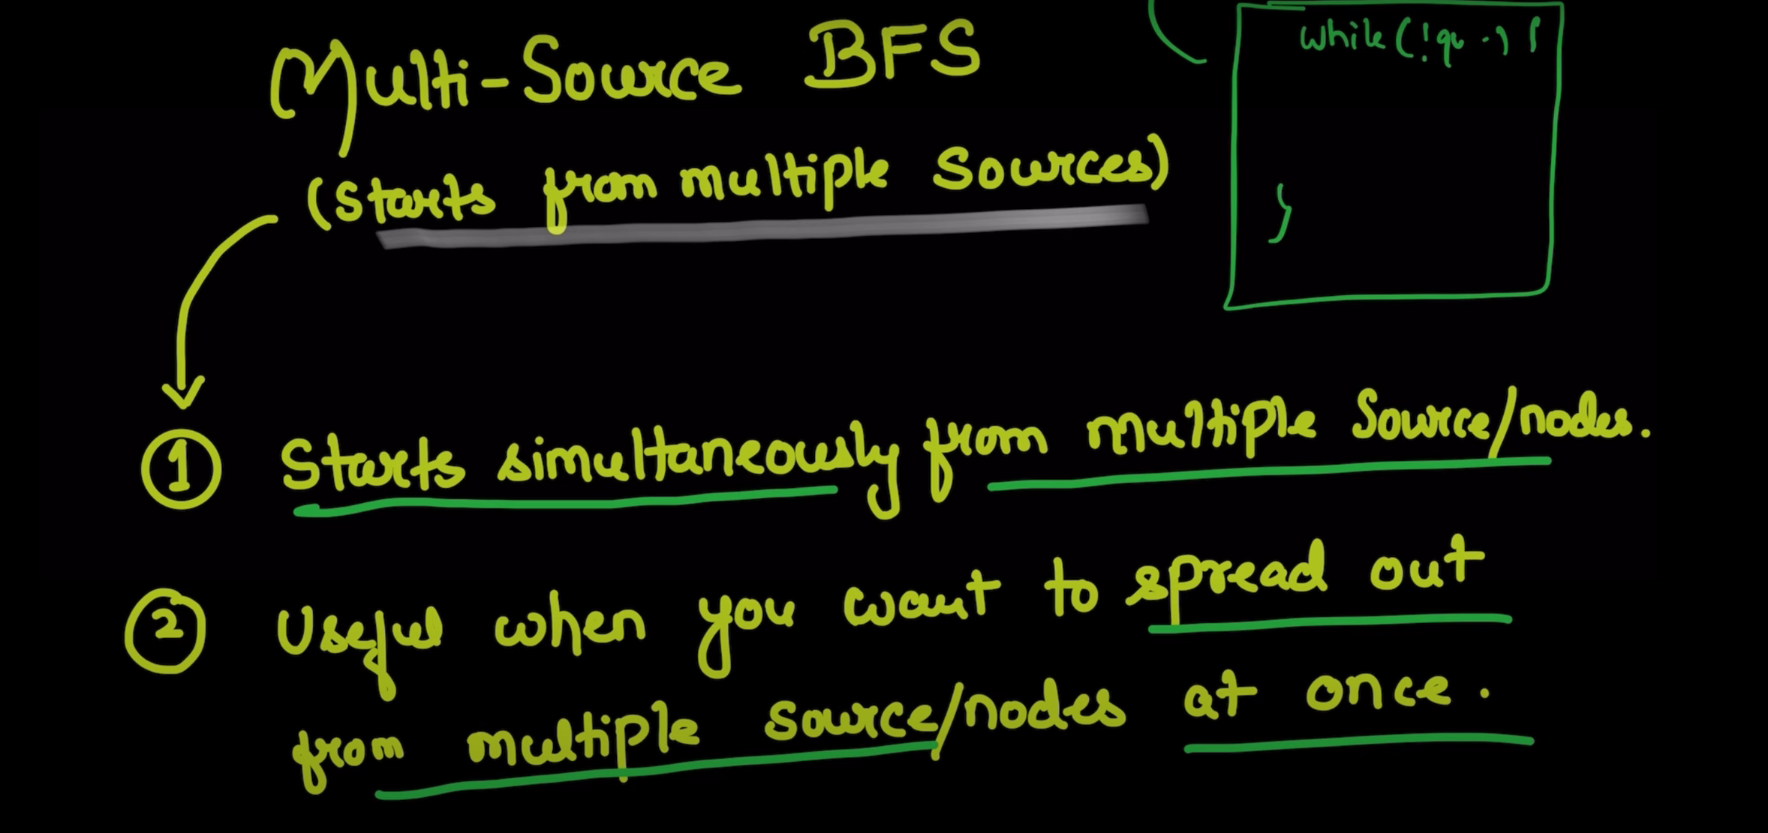 Multi-Source BFS
(Starts from multiple Sources)
while(!qu..) {
}
1 Starts simultaneously from multiple Source/nodes.
2 Useful when you want to spread out
from multiple source/nodes at once.